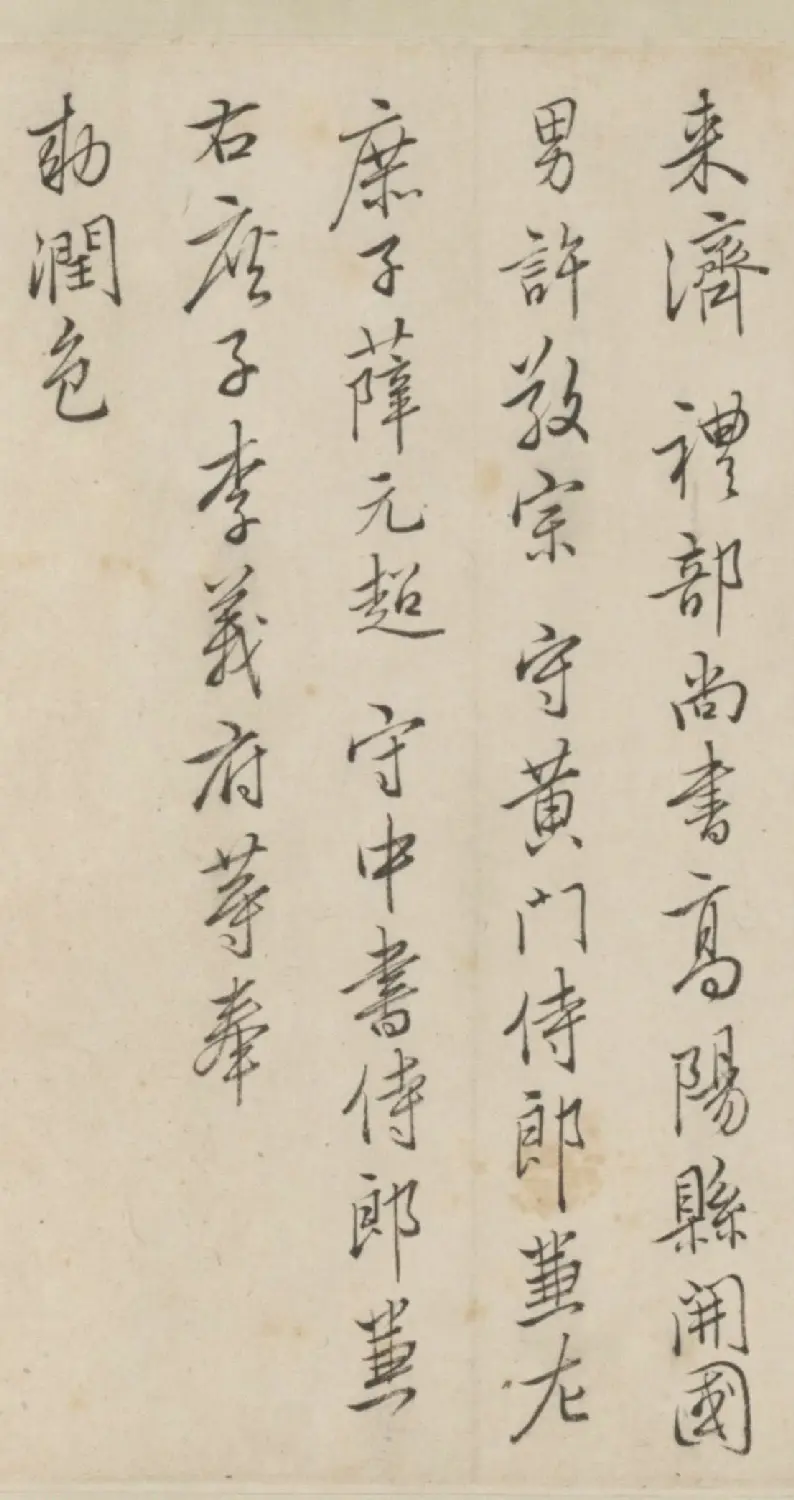 来濟 禮部尚書高陽縣開國
男許敬宗 守黃門侍郎兼左
庶子薛元超 守中書侍郎兼
右庶子李義府等奉
勅潤色